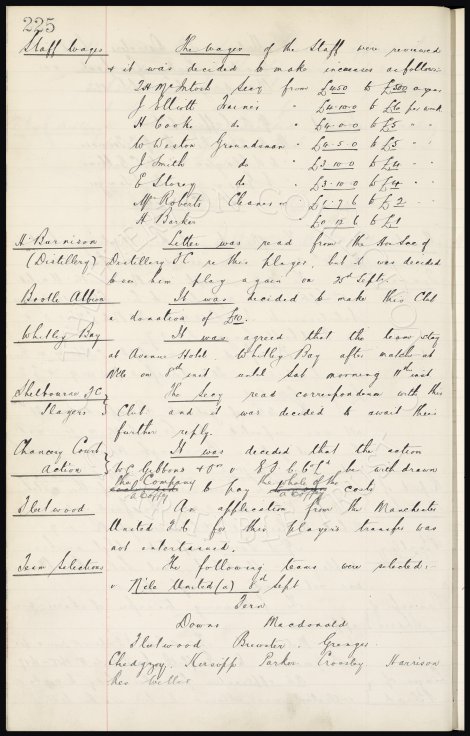 225
Staff Wages The wages of the Staff were reviewed
& it was decided to make increases as follows:-
Secy from £450 to £500 a year
J Elliott Trainer " £4-10-0 to £6 per week
H Cooke do " £4-0-0 to £5 " "
W Weston Groundsman " £4-5-0 to £5 " "
J Smith do " £3-10-0 to £4 " "
E Storey do " £3-10-0 to £4 " "
Mrs Roberts Cleaner " to £2 " "
H Barker to £1
H. Barnison Letter was read from the Hon Secy of
(Distillery) Distillery F.C. re this player, but it was decided
to see him play again on Septr.
Bootle Albion It was decided to make this Club
a donation of £10.
Whitley Bay It was agreed that the team stay
at Avenue Hotel, Whitley Bay after match at
N'cle on 8th inst until Sat morning 11th inst
Shelbourne F.C The Secy read correspondence with this
Players Club and it was decided to await their
further reply.
Chancery Court It was decided that the action
Action W.C. Gibbons & Or v E.F.C. Co Ld be withdrawn
the Company to pay the whole of the costs
a copy a copy
Fleetwood An application from the Manchester
United F.C. for this player's transfer was
not entertained.
Team Selections The following teams were selected:-
v N'cle United (a) 8th Sept
Fern
Downs Macdonald
Fleetwood Brewster Grenyer
Chedgzoy Kirsopp Parker Crossley Harrison
Res